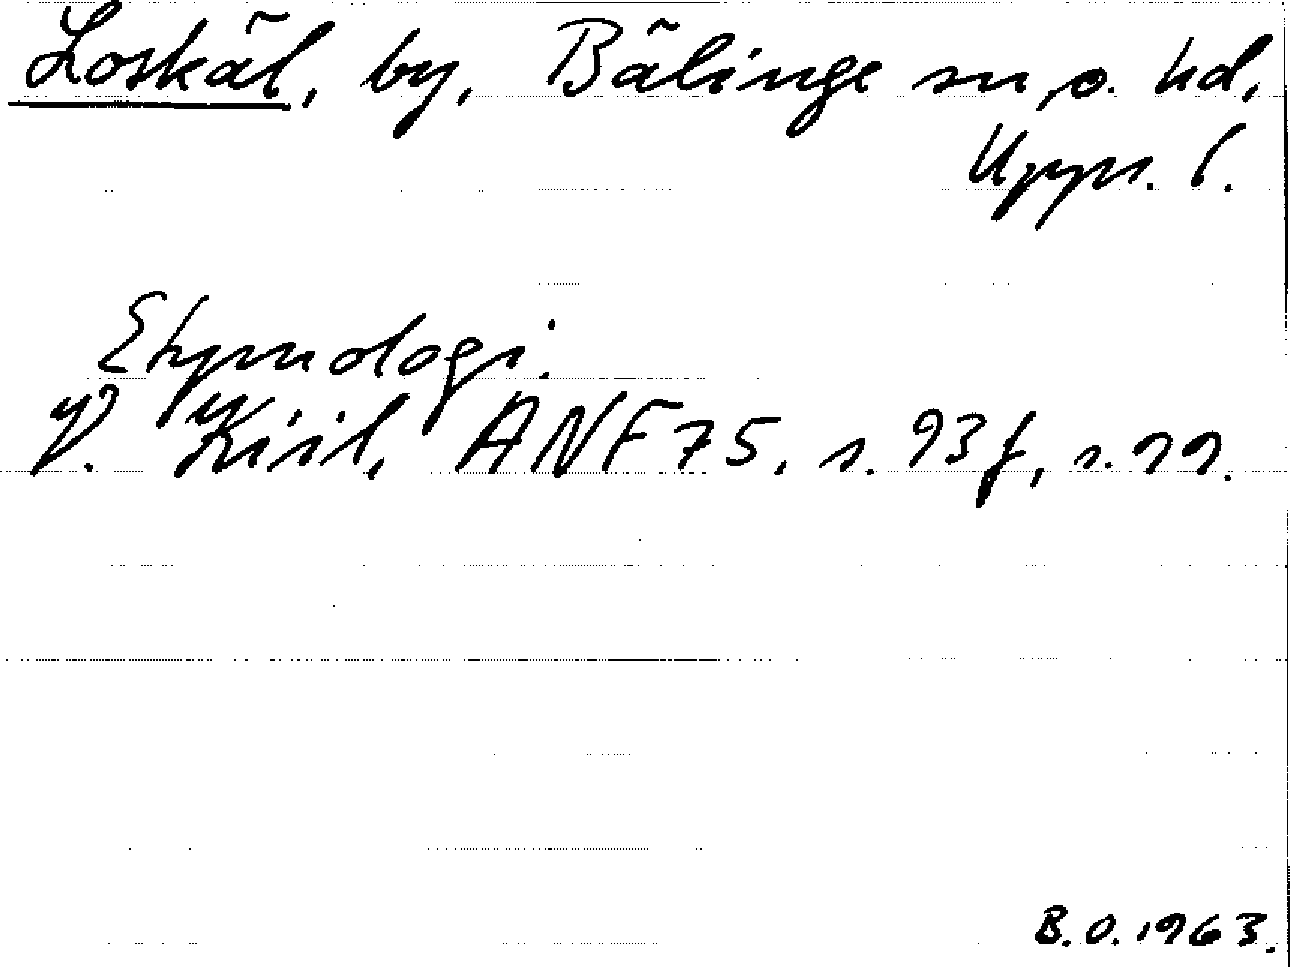 Loskäl, by, Bälinge sn o. hd,
Upps. l.
Etymologi.
V. Kiil, ANF 75, s. 93f, s. 99.
B.O. 1963.